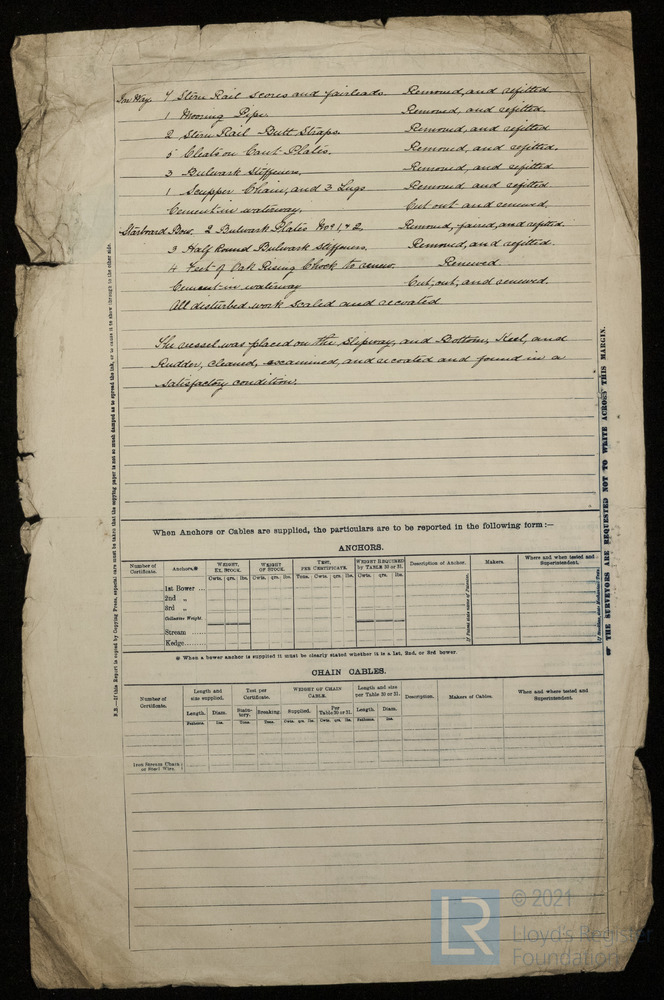 In Way. 7 Stern Rail scores and fairleads Removed, and refitted.
1 Mooring Pipe. Removed, and refitted.
2 Stern Rail Butt Straps. Removed, and refitted
5 Cleats on Cant Plates. Removed, and refitted.
3 Bulwark Stiffeners. Removed, and refitted
1 Scupper Chain, and 3 Lugs Removed and refitted
Cement in waterway. Cut out and renewed,
Starboard Bow. 2 Bulwark Plates Nos 1, & 2. Removed, faired, and refitted
3 Half Round Bulwark Stiffeners. Removed, and refitted.
4 Feet of Oak Rising Chock to renew. Renewed.
Cement in waterway Cut, out, and renewed.
All disturbed work scaled and recoated
The vessel was placed on the Slipway, and Bottom, Keel, and
Rudder, cleaned, examined, and recoated and found in a
satisfactory condition.
When Anchors or Cables are supplied, the particulars are to be reported in the following form :—
ANCHORS.
Number of Certificate. Anchors.* WEIGHT, EX. STOCK. WEIGHT OF STOCK. TEST, PER CERTIFICATE. WEIGHT REQUIRED by TABLE 30 or 31. Description of Anchor. Makers. Where and when tested and Superintendent.
Cwts. qrs. lbs. Cwts. qrs. lbs. Tons. Cwts. qrs. lbs. Cwts. qrs. lbs.
1st Bower ...
2nd „
3rd „
Collective Weight
Stream ......
Kedge......
If Patent state name of Patentee.
* When a bower anchor is supplied it must be clearly stated whether it is a 1st, 2nd, or 3rd bower.
CHAIN CABLES.
Number of Certificate. Length and size supplied. Test per Certificate. WEIGHT OF CHAIN CABLE. Length and size per Table 30 or 31. Description. Makers of Cables. When and where tested and Superintendent.
Length. Diam. Statutory. Breaking. Supplied. Per Table 30 or 31. Length. Diam.
Fathoms. Ins. Tons. Tons. Cwts. qrs. lbs. Cwts. qrs. lbs. Fathoms. Ins.
Iron Stream Chain or Steel Wire.
R.R.—If this Report is copied by Copying Press, especial care must be taken that the copying paper is not so much damped as to spread the ink, or to cause it to show through to the other side.
THE SURVEYORS ARE REQUESTED NOT TO WRITE ACROSS THIS MARGIN.
LR
© 2021
Lloyd's Register
Foundation